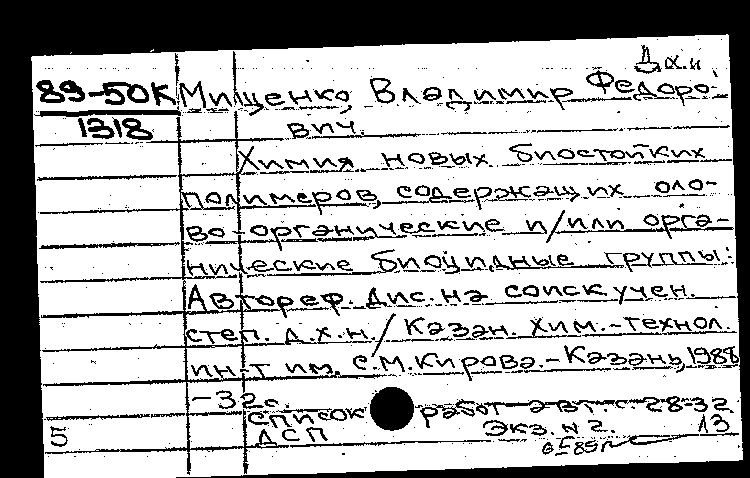 Д х.н
89-50К Мищенко, Владимир Федоро-
1318 вич.
Химия новых биостойких
полимеров, содержащих оло-
во-органические и/или орга-
нические биоцидные группы:
Автореф. дис. на соиск. учен.
степ. д.х.н. / Казан. хим.-технол.
ин-т им. С.М.Кирова.-Казань, 1988
-32с.
список работ авт. с. 28-32
5 ДСП Экз. N 2. 13